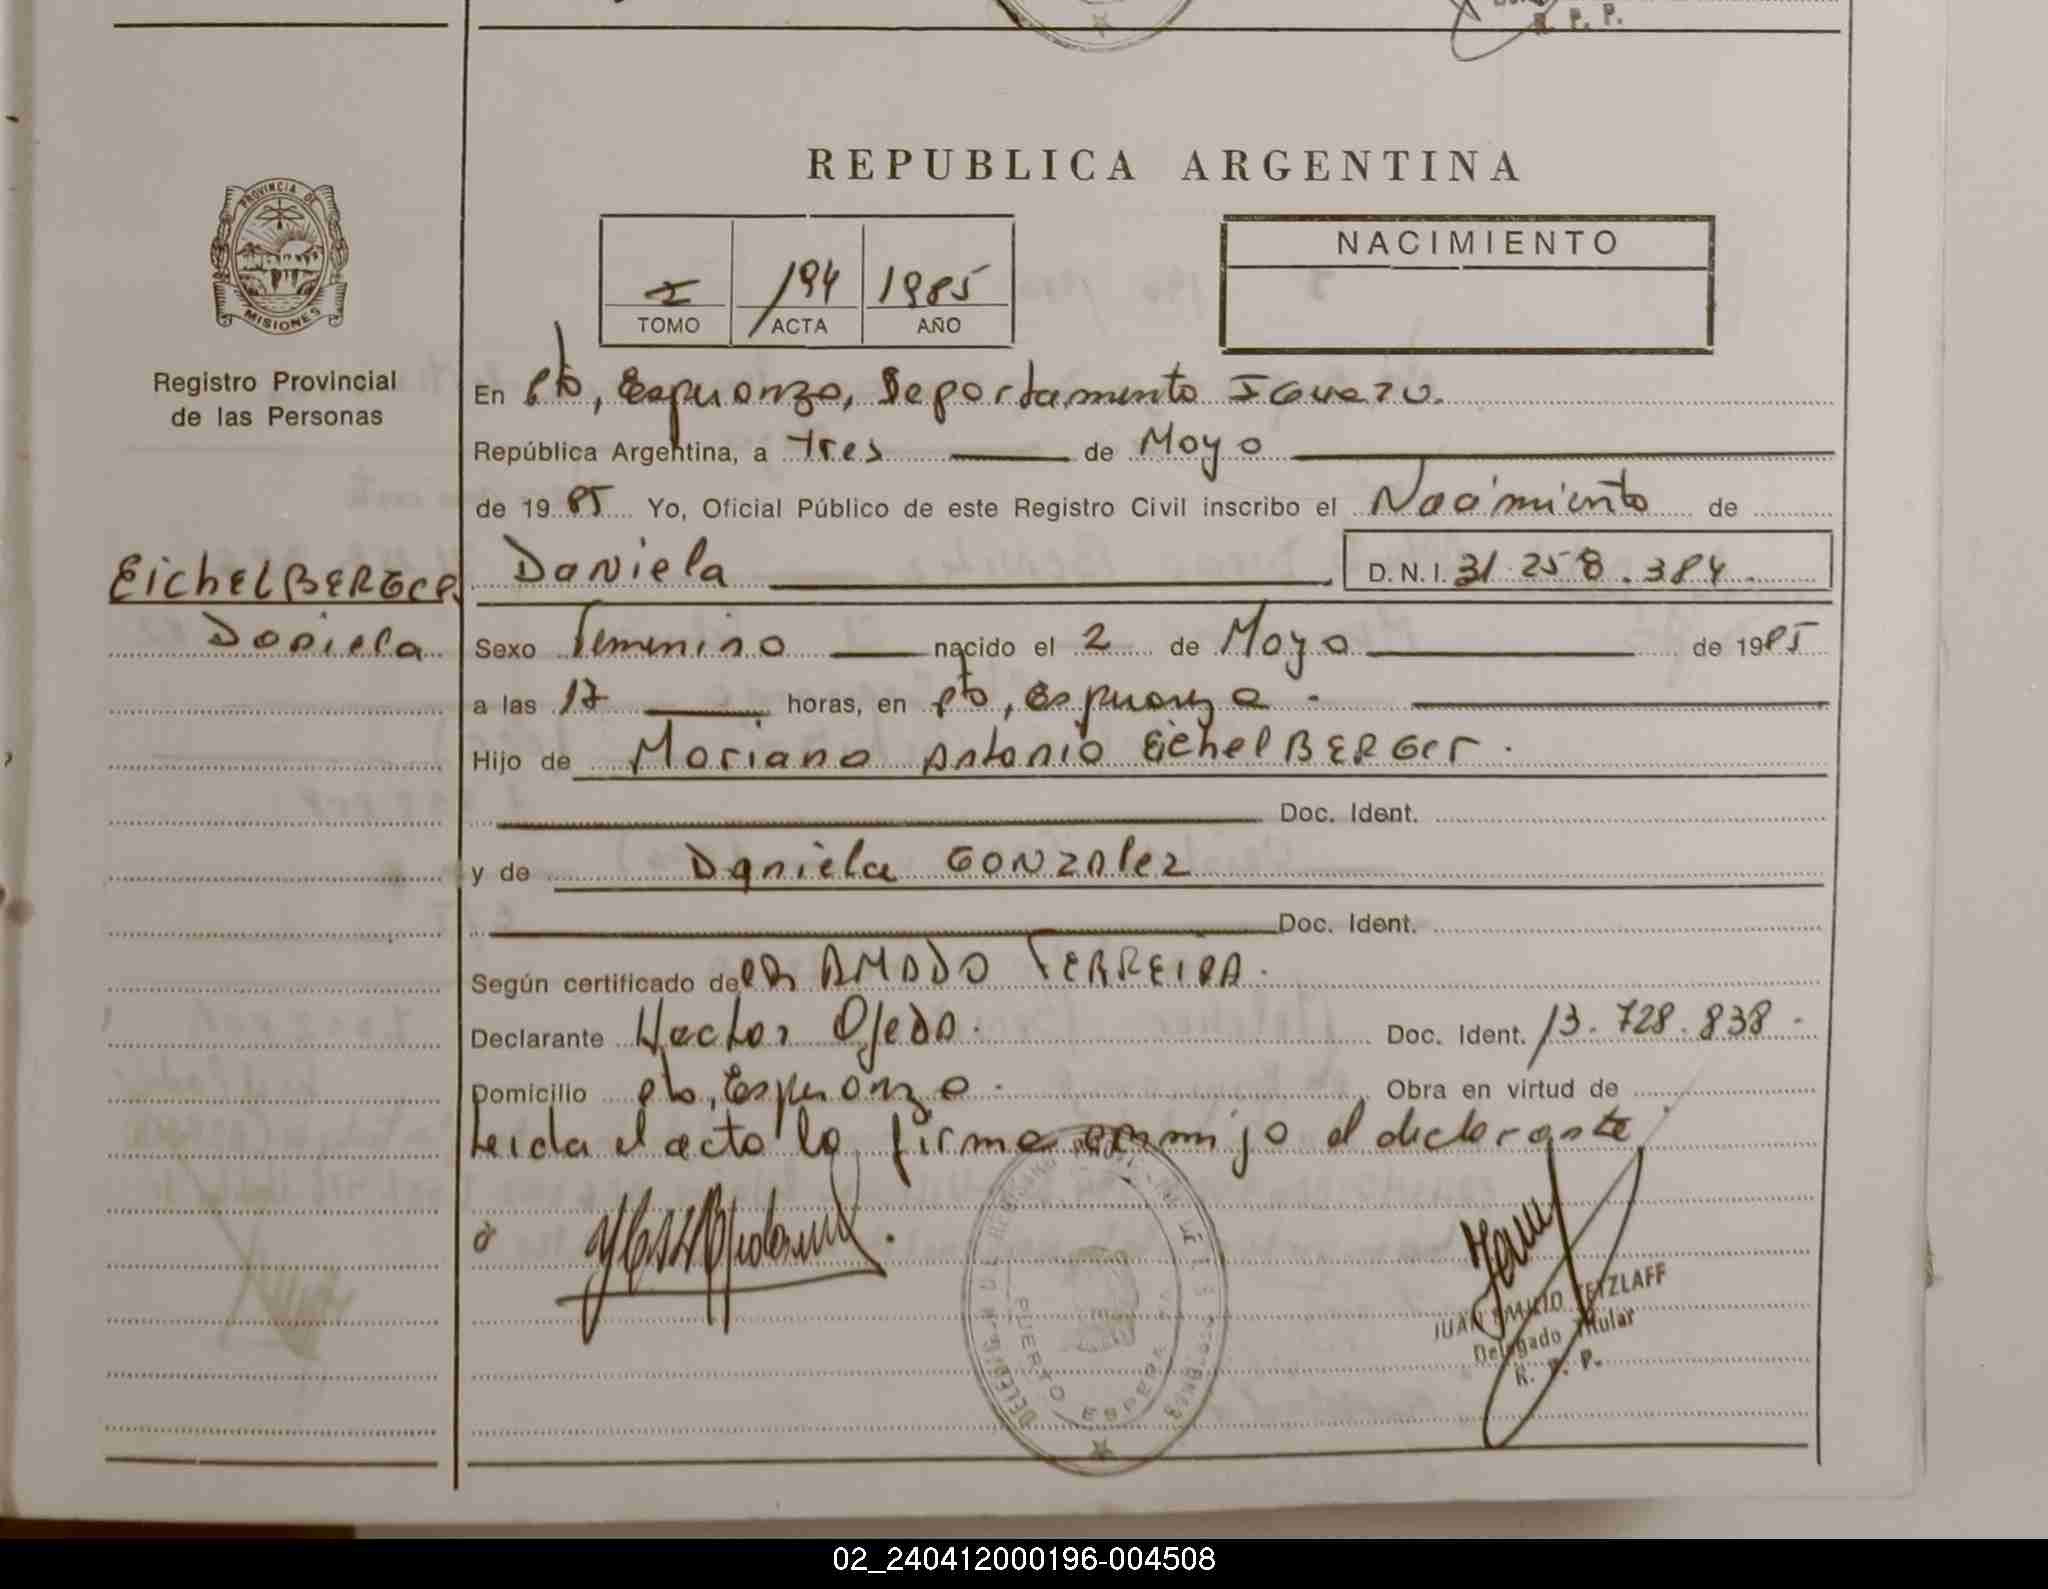 R. P. P.
REPUBLICA ARGENTINA
PROVINCIA DE
MISIONES
Registro Provincial
de las Personas
I 194 1985
TOMO ACTA AÑO
NACIMIENTO
En Pto, Esperanza, Departamento Iguazu.
República Argentina, a tres de Mayo
de 1985 Yo, Oficial Público de este Registro Civil inscribo el Nacimiento de
EichelBERGER Daniela D.N.I. 31.258.384.
Daniela Sexo Femenino nacido el 2 de Mayo de 1985
a las 17 horas, en Pto, Esperanza.
Hijo de Mariano Antonio EichelBERGER.
Doc. Ident.
y de Daniela GONZALEZ
Doc. Ident.
Según certificado de DR AMADO FERREIRA.
Declarante Hector Ojeda. Doc. Ident. 13.728.838.
Domicilio Pto, Esperanza. Obra en virtud de
Leida el acta la firma conmigo el declarante
JUAN EMILIO TETZLAFF
Delegado Titular
R. P. P.
PUERTO ESPERANZA
02_240412000196-004508